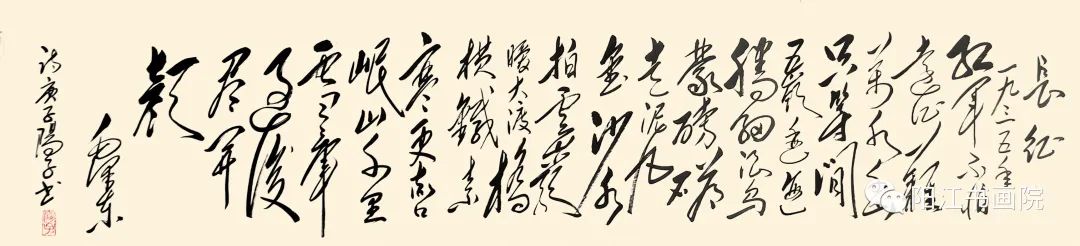 长征
一九三五年
红军不怕
远征难
萬水千山
只等闲
五岭逶迤
腾细浪乌
蒙磅礴
走泥丸
金沙水
拍雲崖
暖大渡橋
横鐵索
寒更喜
岷山千里
雪三軍
过後
尽开
颜
毛泽东
诗庚子陽子书
阳江书画院